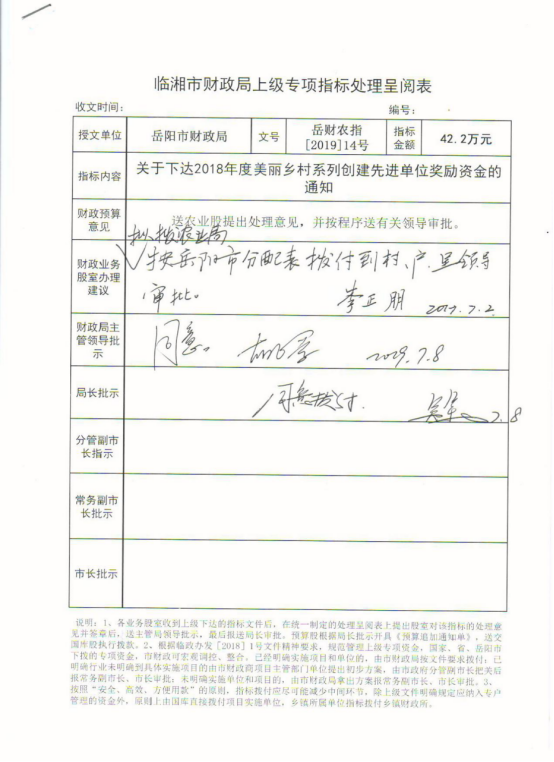 临湘市财政局上级专项指标处理呈阅表
收文时间: 编号:
授文单位 岳阳市财政局 文号 岳财农指[2019]14号 指标金额 42.2万元
指标内容 关于下达2018年度美丽乡村系列创建先进单位奖励资金的通知
财政预算意见 送农业股提出处理意见，并按程序送有关领导审批。
拟拨农业局
财政业务股室办理建议 按岳阳市分配表拨付到村、户，呈领导
审批。 李正明 2019.7.2
财政局主管领导批示 同意。 2019.7.8
局长批示 同意拨付. 7.8
分管副市长指示
常务副市长批示
市长批示
说明：1、各业务股室收到上级下达的指标文件后，在统一制定的处理呈阅表上提出股室对该指标的处理意
见并签章后，送主管局领导批示，最后报送局长审批，预算股根据局长批示开具《预算追加通知单》，送交
国库股执行拨款。2、根据临政办发［2018］1号文件精神要求，规范管理上级专项资金，国家、省、岳阳市
下拨的专项资金，市财政可宏观调控、整合。已经明确实施项目和单位的，由市财政局按文件要求拨付；已
明确行业未明确到具体实施项目的由市财政商项目主管部门单位提出初步方案，由市政府分管副市长把关后
报常务副市长、市长审批；未明确实施单位和项目的，由市财政局拿出方案报常务副市长、市长审批。3、
按照“安全、高效、方便用款”的原则，指标拨付应尽可能减少中间环节，除上级文件明确规定应纳入专户
管理的资金外，原则上由国库直接拨付项目实施单位，乡镇所属单位指标拨付乡镇财政所。